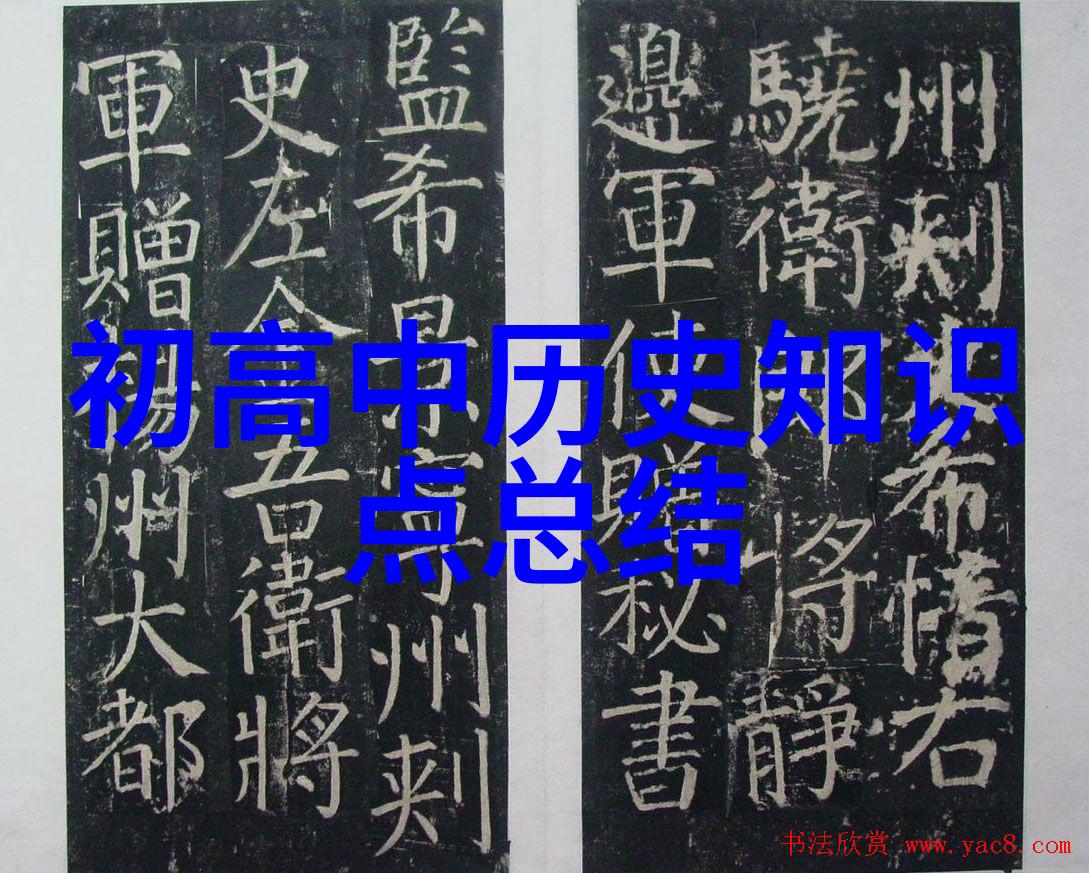 初高中历史知识
点总结
州刺史希右
驍衛郎將靜
邊軍使贈秘書
監希景寧州刺
史左金吾衛將
軍贈揚州大都
书法欣赏 www.yac8.com